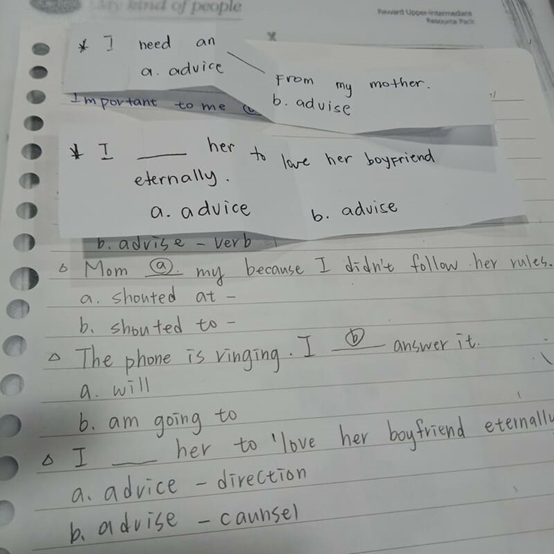 My kind of people
Reward Upper-intermediate
Resource Pack
* I need an ____ from my mother.
a. advice b. advise
Important to me
* I ____ her to love her boyfriend
eternally.
a. advice b. advise
b. advise - verb
△ Mom ⓐ my because I didn't follow her rules.
a. shouted at -
b. shouted to -
△ The phone is ringing. I ⓑ answer it.
a. will
b. am going to
△ I ____ her to 'love her boyfriend eternally
a. advice - direction
b. advise - caunsel